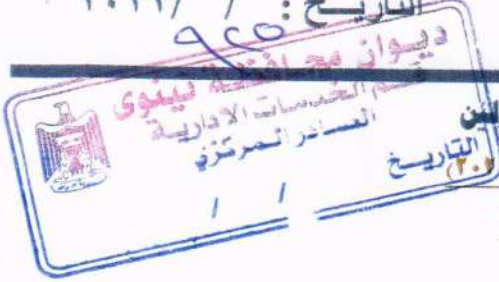 التاريخ : / / ٢٠٢٢
٩٢٥
ديوان محافظة نينوى
قسم الخدمات الادارية
الصادر المركزي
التاريخ
/ /